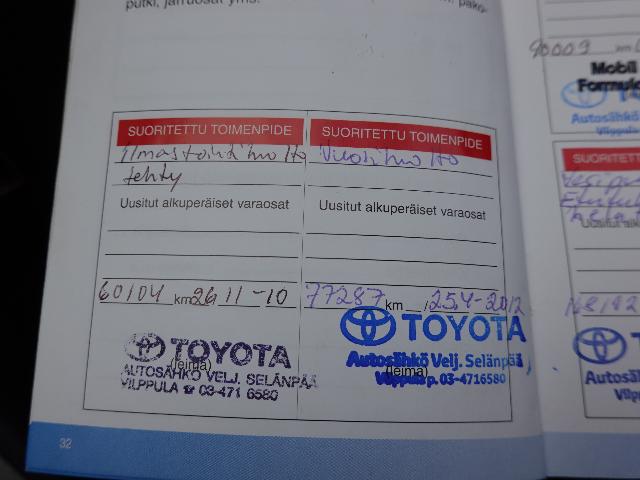 putki, jarruosat yms.
pako-
SUORITETTU TOIMENPIDE
Ilmastointihuolto
tehty
Uusitut alkuperäiset varaosat
60104 km 26.11-10
TOYOTA
(leima)
AUTOSÄHKÖ VELJ. SELÄNPÄÄ
VILPPULA ☎ 03-471 6580
SUORITETTU TOIMENPIDE
Vuosihuolto
Uusitut alkuperäiset varaosat
77287 km 25.4-2012
TOYOTA
Autosähkö Velj. Selänpää,
(leima)
Vilppula p. 03-4716580
90009 km
Mobil
Formula
TO
Autosähkö
Vilppula
SUORITETTU
168192
Autosähkö
Vilppula
32